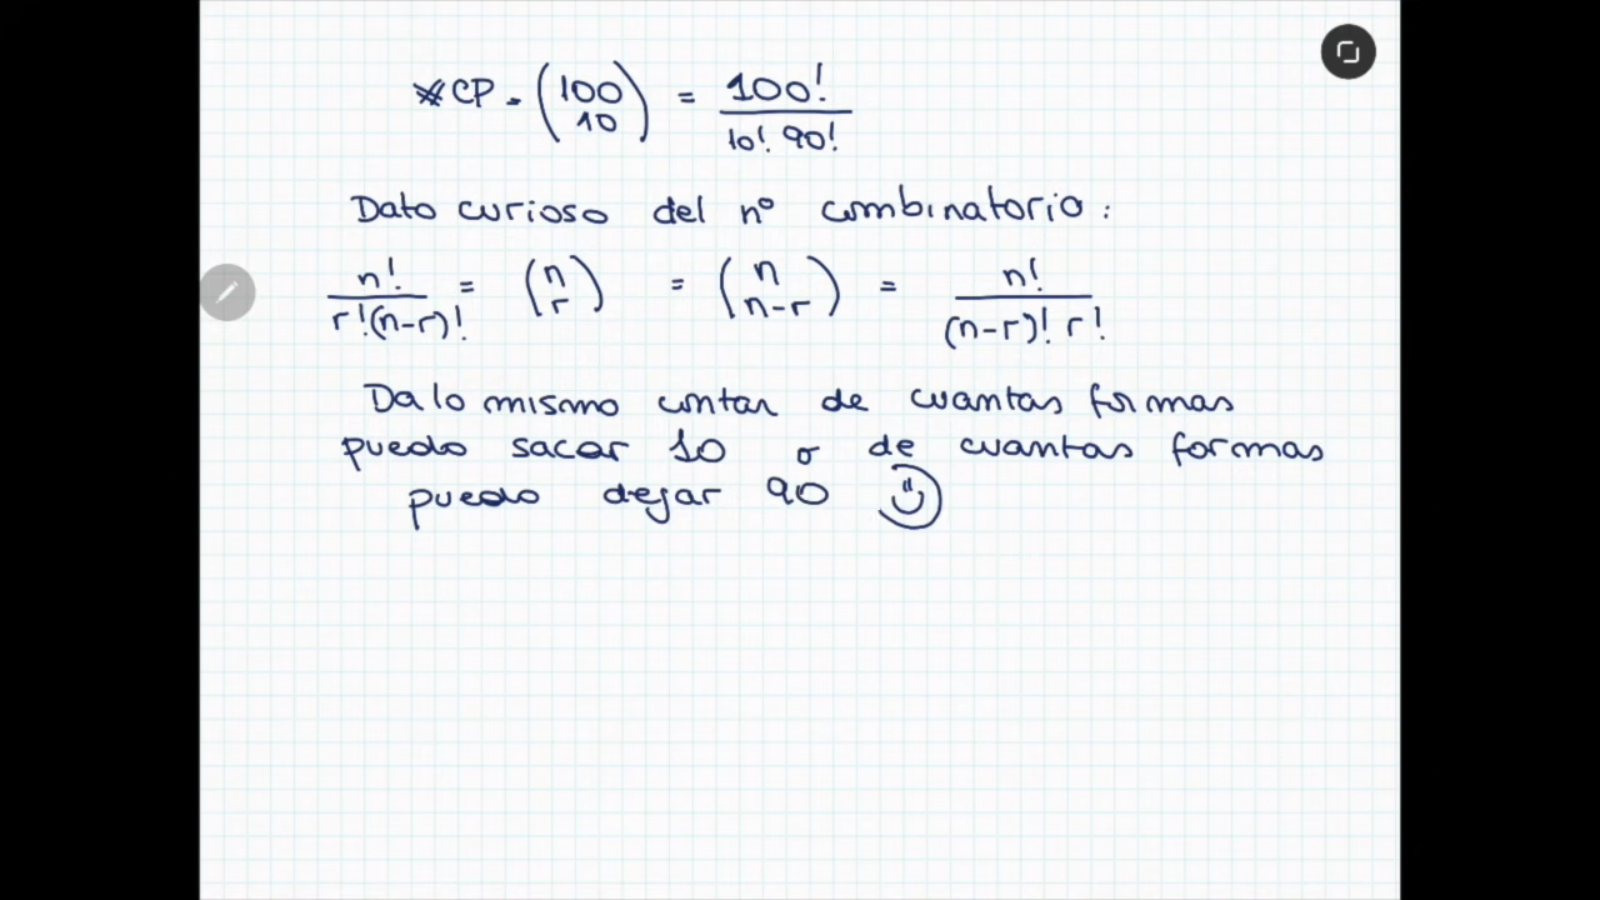 #CP = (100 10) = 100! / 10! 90!
Dato curioso del nº combinatorio:
n! / r!(n-r)! = (n r) = (n n-r) = n! / (n-r)! r!
Da lo mismo contar de cuantas formas
puedo sacar 10 o de cuantas formas
puedo dejar 90